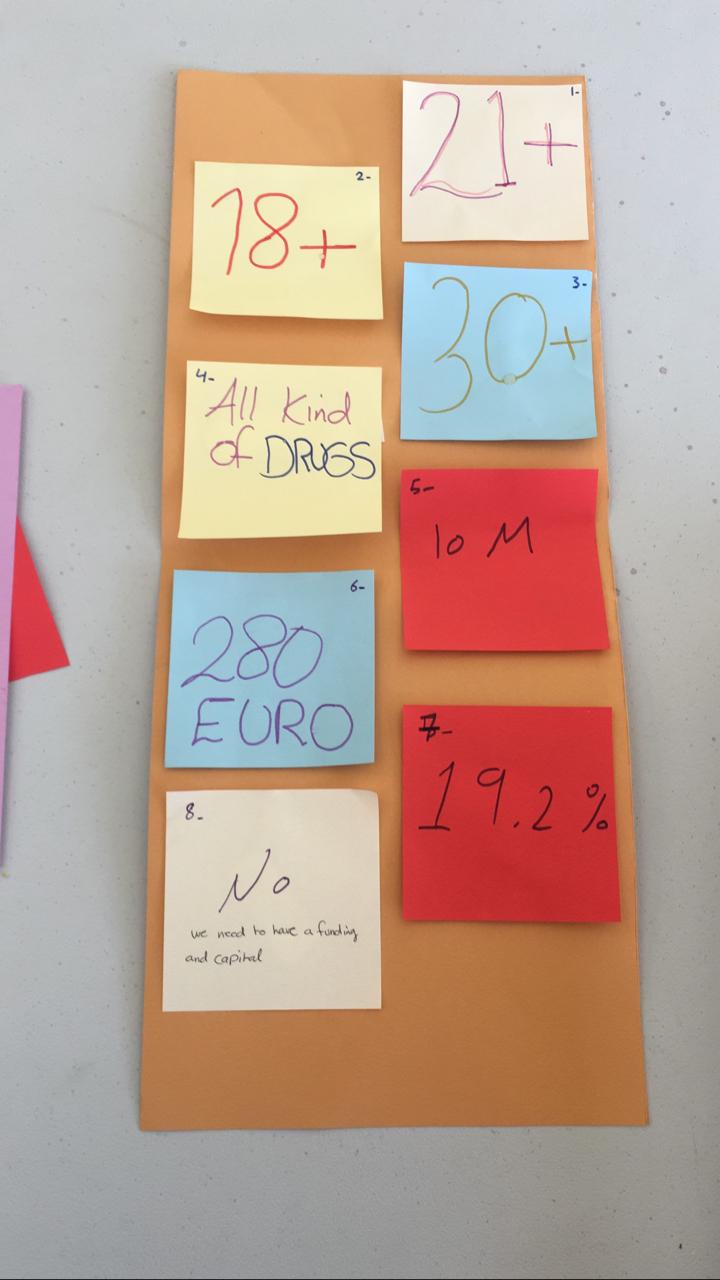 1-
21+
2-
18+
3-
30+
4-
All Kind
of DRUGS
5-
10 M
6-
280
EURO
7-
19.2 %
8-
No
we need to have a funding
and capital